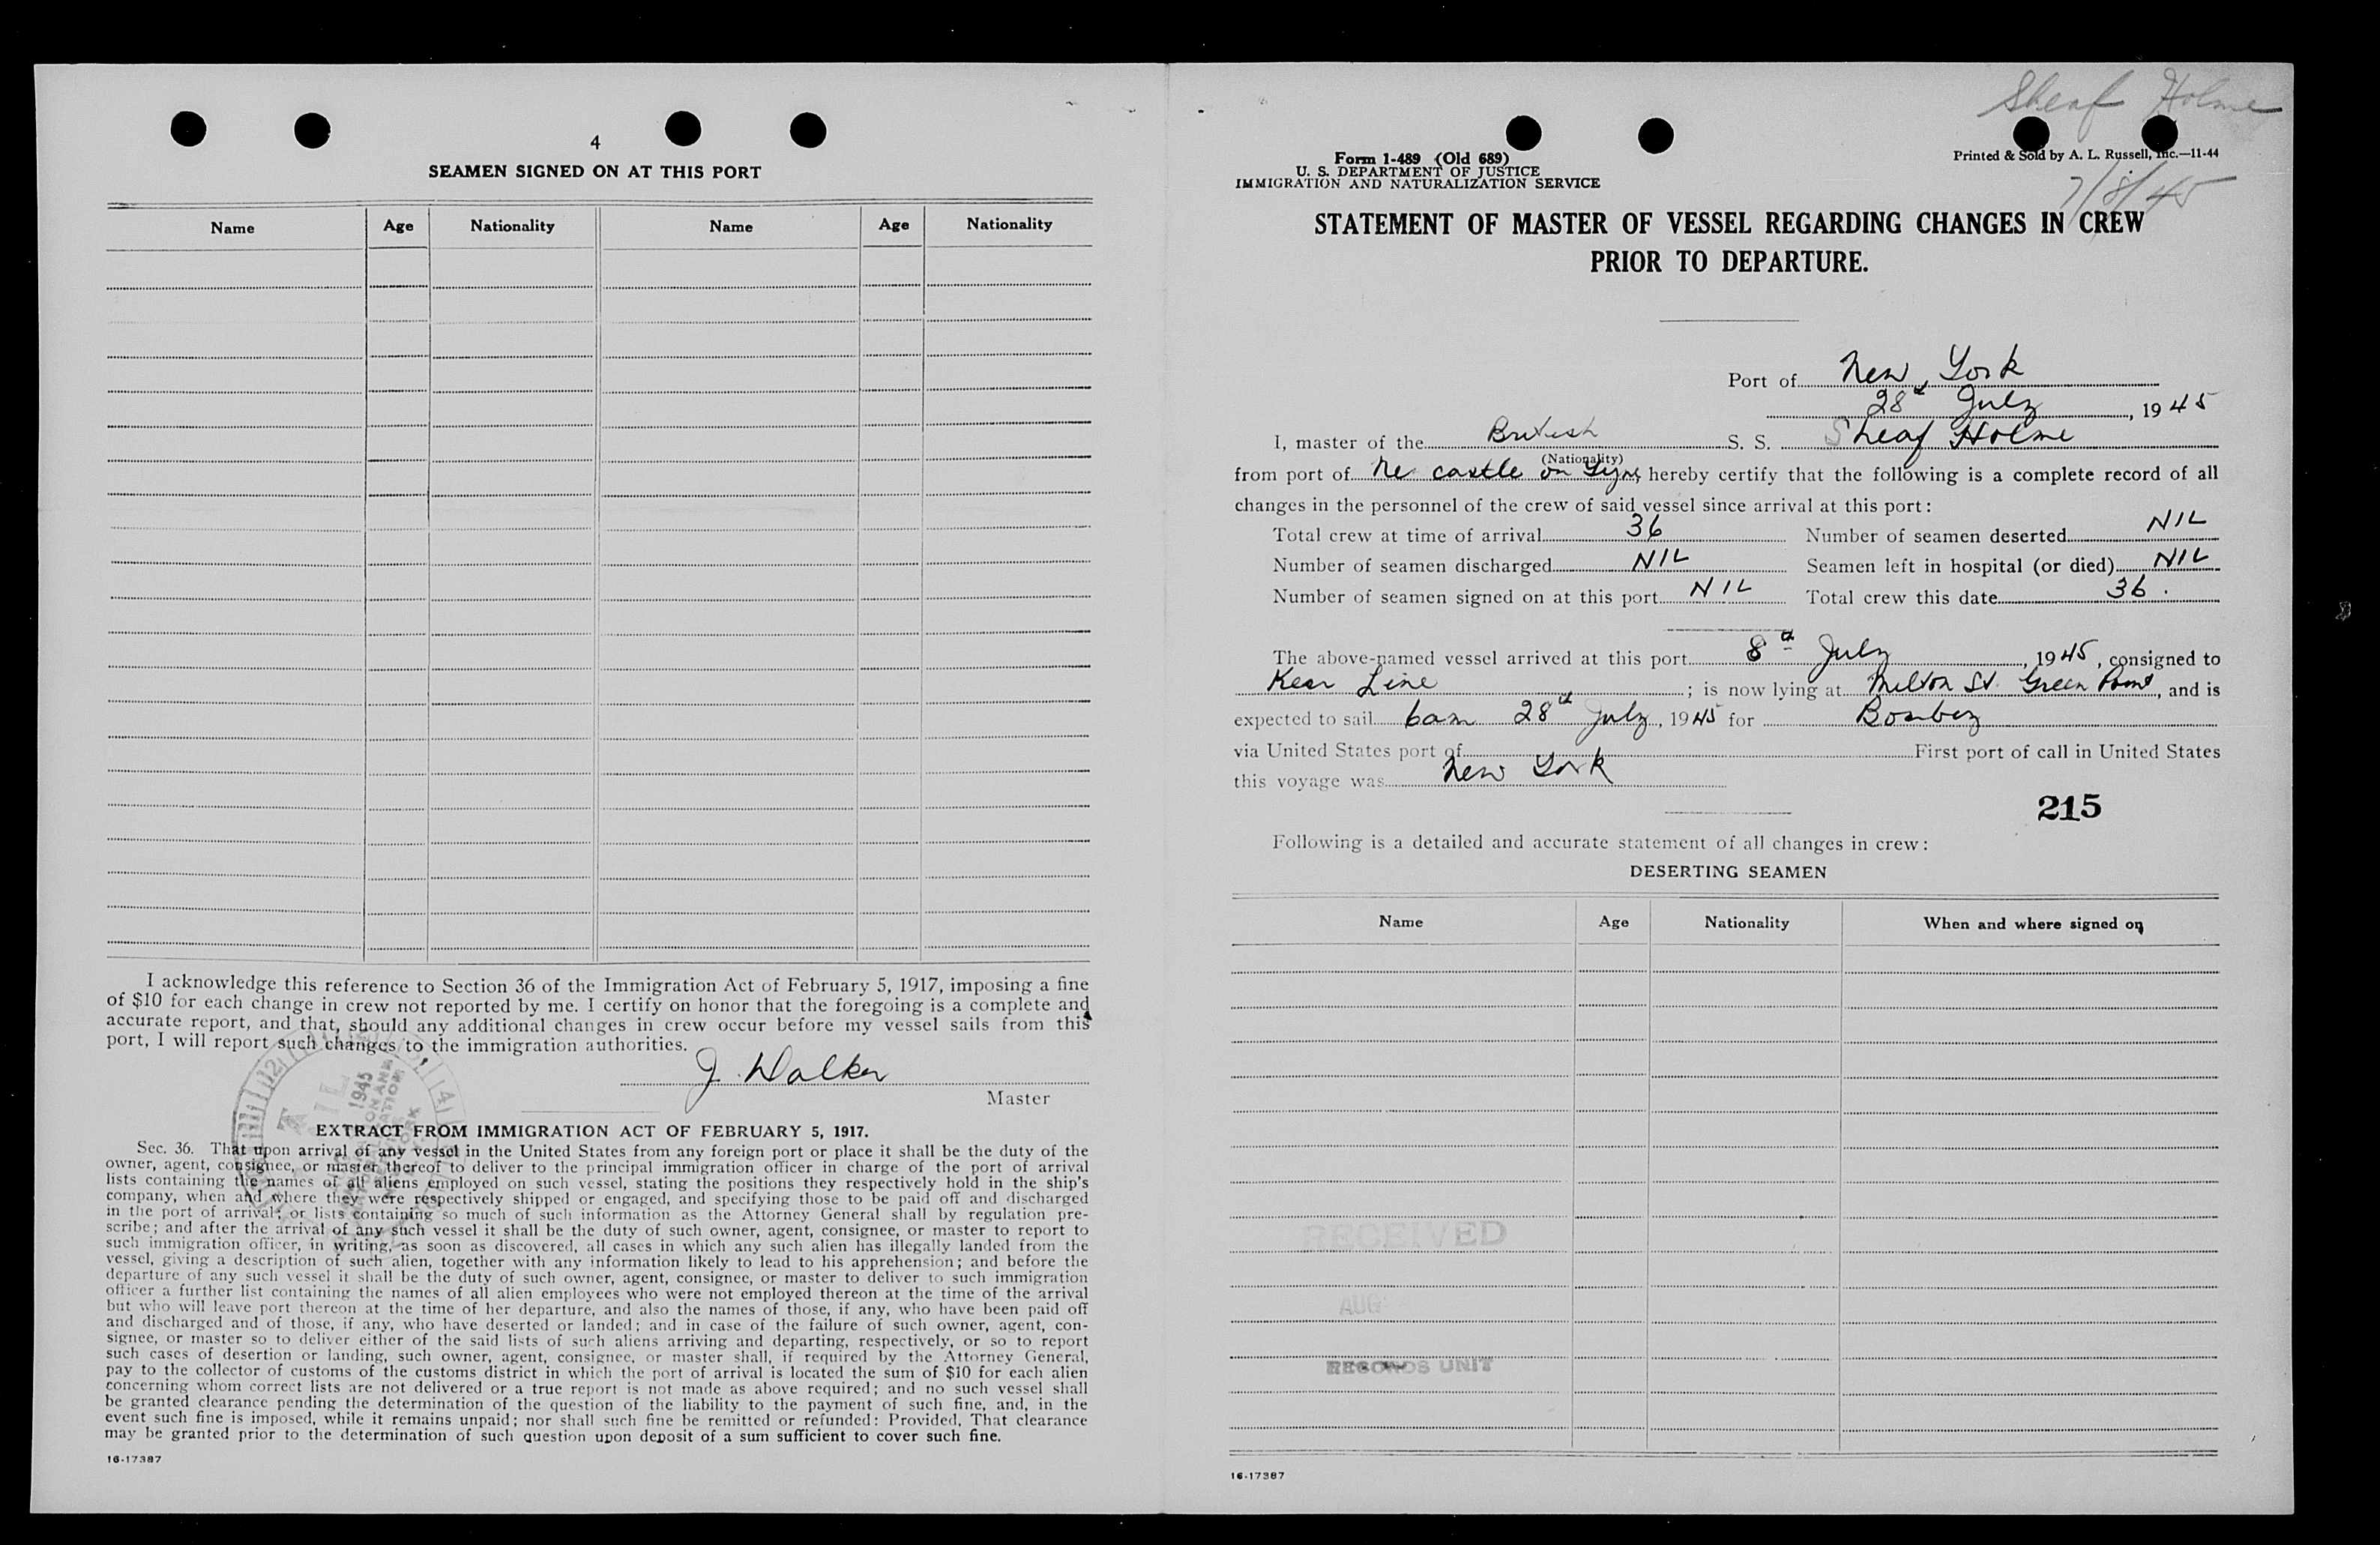 4
SEAMEN SIGNED ON AT THIS PORT
Name Age Nationality Name Age Nationality
I acknowledge this reference to Section 36 of the Immigration Act of February 5, 1917, imposing a fine
of $10 for each change in crew not reported by me. I certify on honor that the foregoing is a complete and
accurate report, and that, should any additional changes in crew occur before my vessel sails from this
port, I will report such changes to the immigration authorities.
J. Walker
Master
EXTRACT FROM IMMIGRATION ACT OF FEBRUARY 5, 1917.
Sec. 36. That upon arrival of any vessel in the United States from any foreign port or place it shall be the duty of the
owner, agent, consignee, or master thereof to deliver to the principal immigration officer in charge of the port of arrival
lists containing the names of all aliens employed on such vessel, stating the positions they respectively hold in the ship's
company, when and where they were respectively shipped or engaged, and specifying those to be paid off and discharged
in the port of arrival; or lists containing so much of such information as the Attorney General shall by regulation pre-
scribe; and after the arrival of any such vessel it shall be the duty of such owner, agent, consignee, or master to report to
such immigration officer, in writing, as soon as discovered, all cases in which any such alien has illegally landed from the
vessel, giving a description of such alien, together with any information likely to lead to his apprehension; and before the
departure of any such vessel it shall be the duty of such owner, agent, consignee, or master to deliver to such immigration
officer a further list containing the names of all alien employees who were not employed thereon at the time of the arrival
but who will leave port thereon at the time of her departure, and also the names of those, if any, who have been paid off
and discharged and of those, if any, who have deserted or landed; and in case of the failure of such owner, agent, con-
signee, or master so to deliver either of the said lists of such aliens arriving and departing, respectively, or so to report
such cases of desertion or landing, such owner, agent, consignee, or master shall, if required by the Attorney General,
pay to the collector of customs of the customs district in which the port of arrival is located the sum of $10 for each alien
concerning whom correct lists are not delivered or a true report is not made as above required; and no such vessel shall
be granted clearance pending the determination of the question of the liability to the payment of such fine, and, in the
event such fine is imposed, while it remains unpaid; nor shall such fine be remitted or refunded: Provided, That clearance
may be granted prior to the determination of such question upon deposit of a sum sufficient to cover such fine.
16-17387
1945
Sheaf Holme
Form 1-489 (Old 689)
U. S. DEPARTMENT OF JUSTICE
IMMIGRATION AND NATURALIZATION SERVICE
Printed & Sold by A. L. Russell, Inc.—11-44
7/8/45
STATEMENT OF MASTER OF VESSEL REGARDING CHANGES IN CREW
PRIOR TO DEPARTURE.
Port of New York
28th July, 1945
I, master of the British S. S. Sheaf Holme
(Nationality)
from port of Ne castle on Tyne hereby certify that the following is a complete record of all
changes in the personnel of the crew of said vessel since arrival at this port:
Total crew at time of arrival 36 Number of seamen deserted NIL
Number of seamen discharged NIL Seamen left in hospital (or died) NIL
Number of seamen signed on at this port NIL Total crew this date 36.
The above-named vessel arrived at this port 8th July, 1945, consigned to
Kerr Line; is now lying at Milton St. Green Point, and is
expected to sail 6am 28th July, 1945 for Bombay
via United States port of First port of call in United States
this voyage was New York
215
Following is a detailed and accurate statement of all changes in crew:
DESERTING SEAMEN
Name Age Nationality When and where signed on
RECEIVED
AUG
RECORDS UNIT
16-17387